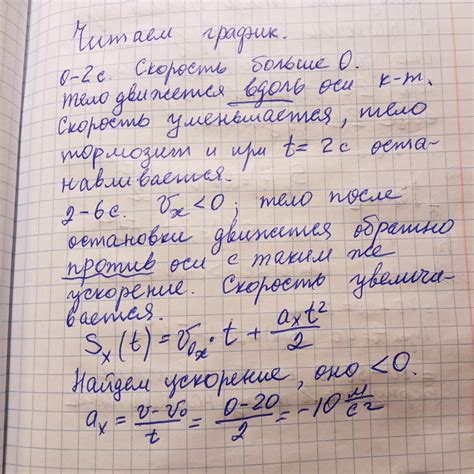 Читаем график.
0-2с. Скорость больше 0.
Тело движется вдоль оси к-т.
Скорость уменьшается, тело
тормозит и при t = 2с оста-
навливается.
2-6с. Vₓ<0; тело после
остановки движится обратно
против оси с таким же
ускорение. Скорость увелича-
вается.
Sₓ(t) = V₀ₓ·t + aₓt²/2
Найдем ускорение, оно <0.
aₓ = v-v₀/t = 0-20/2 = -10 м/с²